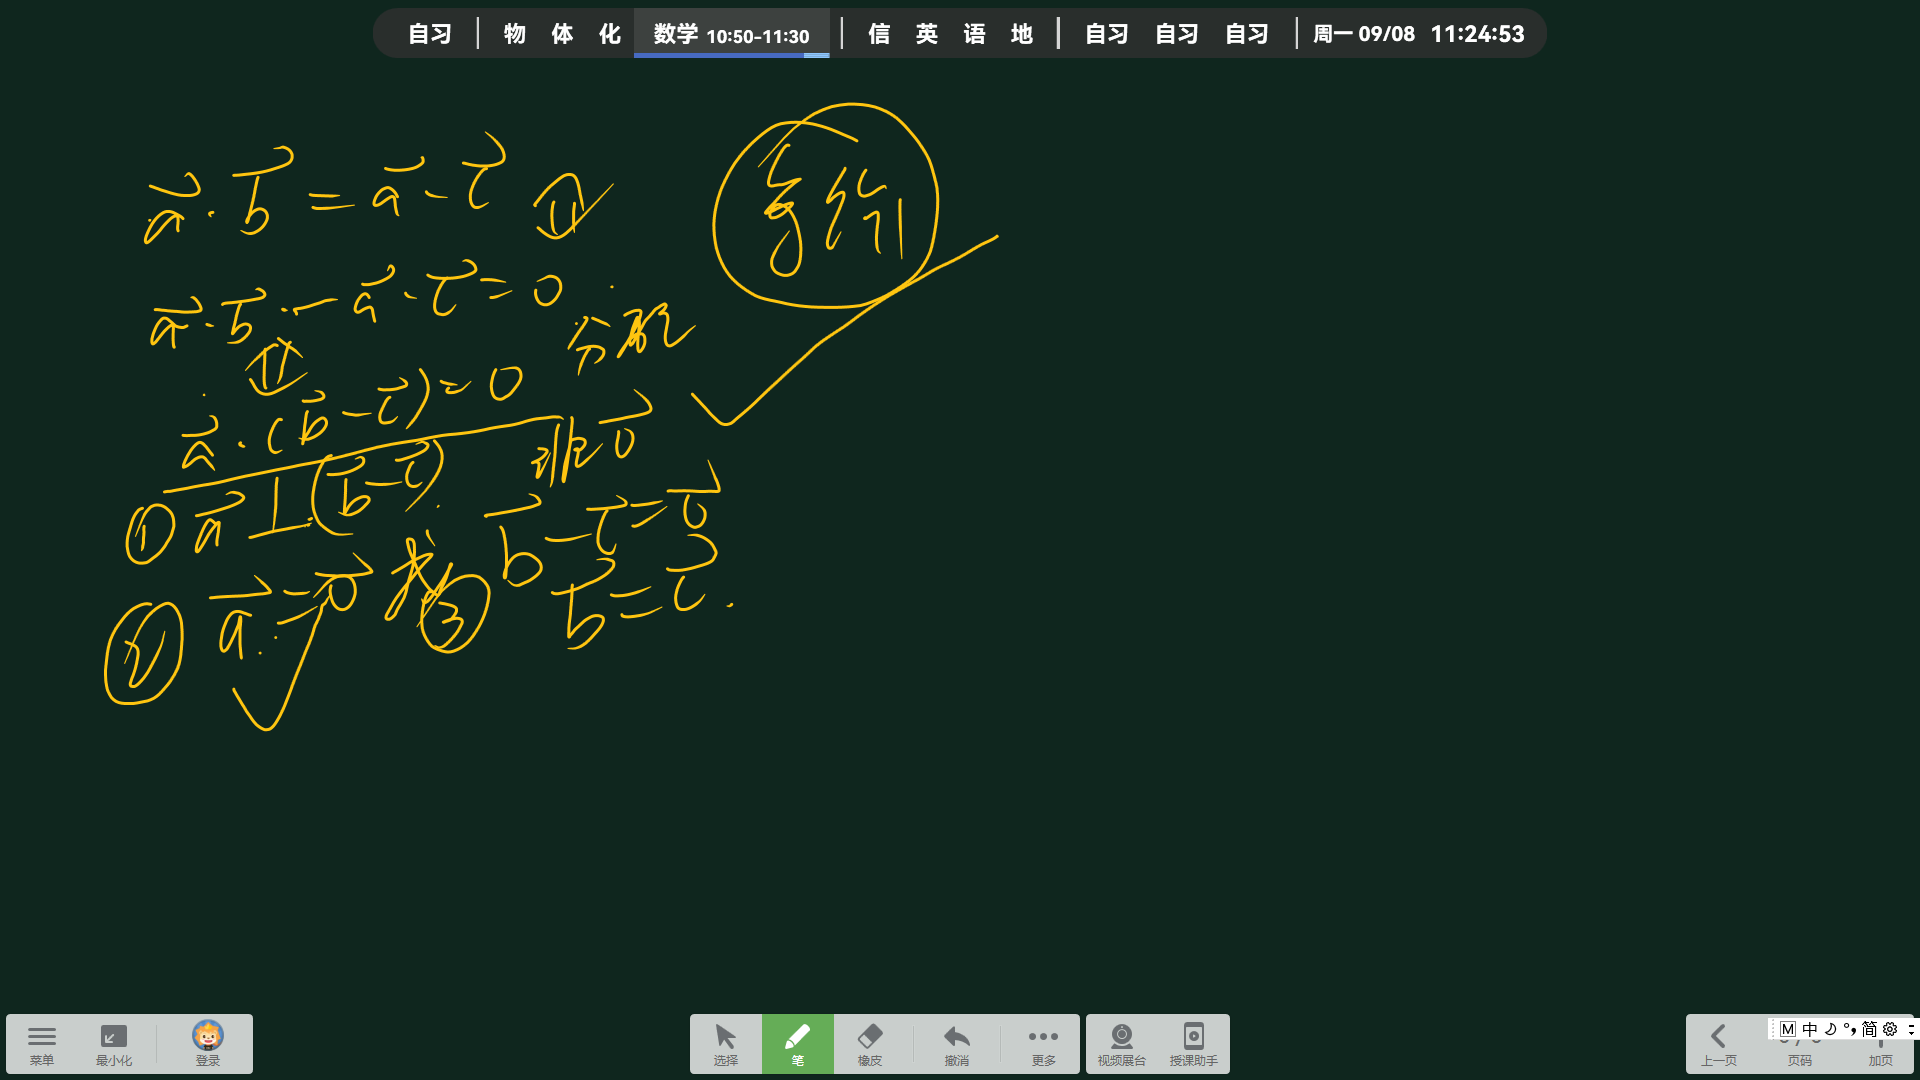 自习 | 物 体 化 数学 10:50-11:30 | 信 英 语 地 | 自习 自习 自习 | 周一 09/08 11:24:53
a⃗·b⃗=a⃗·c⃗
a⃗·b⃗-a⃗·c⃗=0
分配
a⃗·(b⃗-c⃗)=0
非0⃗
① a⃗⊥(b⃗-c⃗)
b⃗-c⃗=0⃗
② a⃗=0⃗ 或 ③ b⃗=c⃗.
菜单 最小化 登录 选择 笔 橡皮 撤消 更多 视频展台 授课助手 上一页 页码 加页
M 中 简